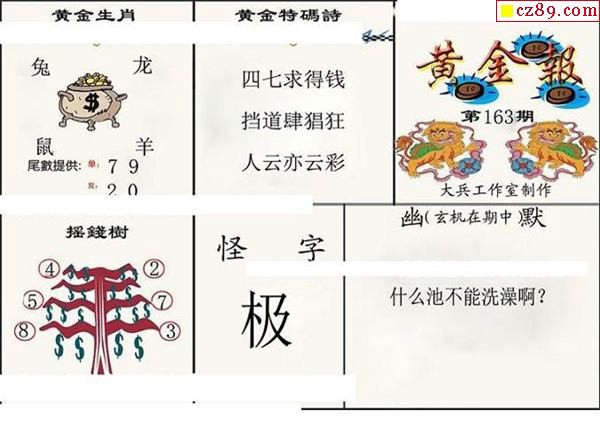 cz89.com
黄金生肖
兔 龙
$
鼠 羊
尾數提供: 单: 7 9
双: 2 0
黄金特碼詩
四七求得钱
挡道肆猖狂
人云亦云彩
黄金報
第163期
大兵工作室制作
摇錢樹
④ ②
⑤ ⑦
⑧ ③
$ $ $ $ $ $ $ $
怪 字
极
幽(玄机在期中)默
什么池不能洗澡啊?